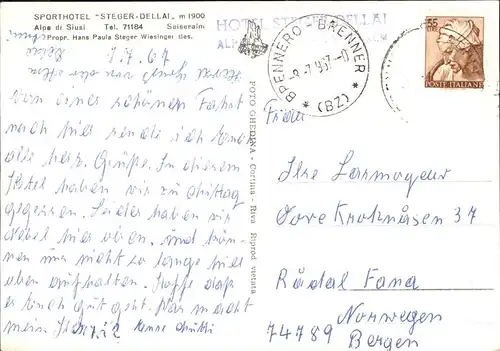 SPORTHOTEL "STEGER-DELLAI" m 1900
Alpe di Siusi Tel. 71184 Seiseralm
Propr. Hans Paula Steger Wiesinger des.
HOTEL STEGER-DELLAI
BRENNERO - BRENNER
* (BZ) *
55
POSTE ITALIANE
Von einer schönen Fahrt
nach hier sende ich Euch
alle herz. Grüße. In diesem
Hotel haben wir zu Mittag
gegessen. Leider haben wir
Nebel hier oben, und kön-
nen uns nicht so lange hier
oben aufhalten. Hoffe daß
es Euch gut geht. Was macht
mein
FOTO GHEDINA - Cortina - Riv. Riprod. vietata
Frau
Ilse Larmogeur
Øvre Kroknåsen 37
Rådal Fana
Norwegen
74789 Bergen